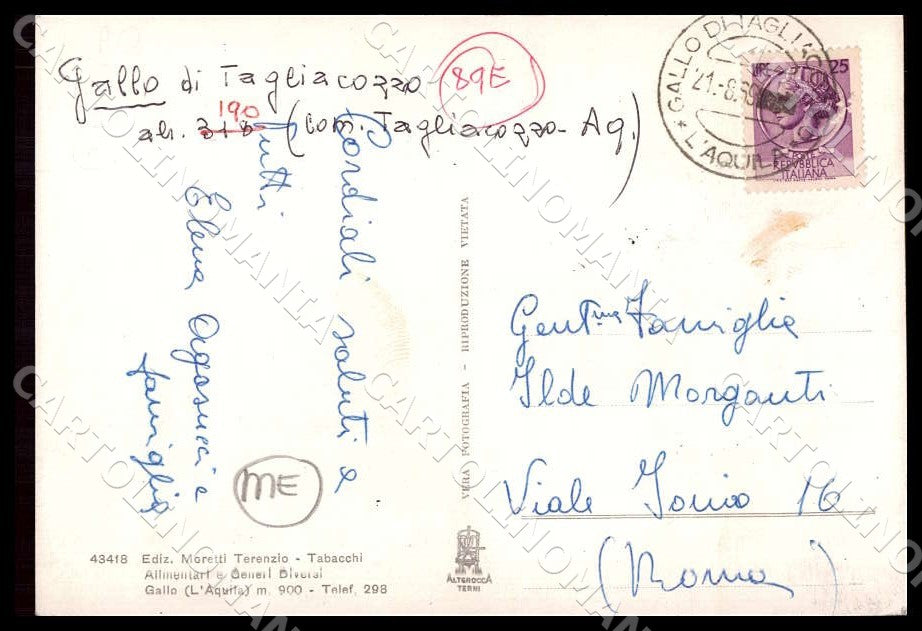 Gallo di Tagliacozzo
89E
190
ab. 315 (com. Tagliacozzo - Aq.)
Cordiali saluti a
tutti
Elena Agosucci e
famiglia
ME
43418 Ediz. Moretti Terenzio - Tabacchi
Alimentari e Generi Diversi
Gallo (L'Aquila) m. 900 - Telef. 298
VERA FOTOGRAFIA - RIPRODUZIONE VIETATA
ALTEROCCA
TERNI
GALLO DI TAGLIACOZZO
21.-8.69
* L'AQUILA
LIRE 25
POSTE
REPVBBLICA
ITALIANA
Gent.ma Famiglia
Ilde Morganti
Viale Ionio 16
(Roma)
CARTOLINOMANIA